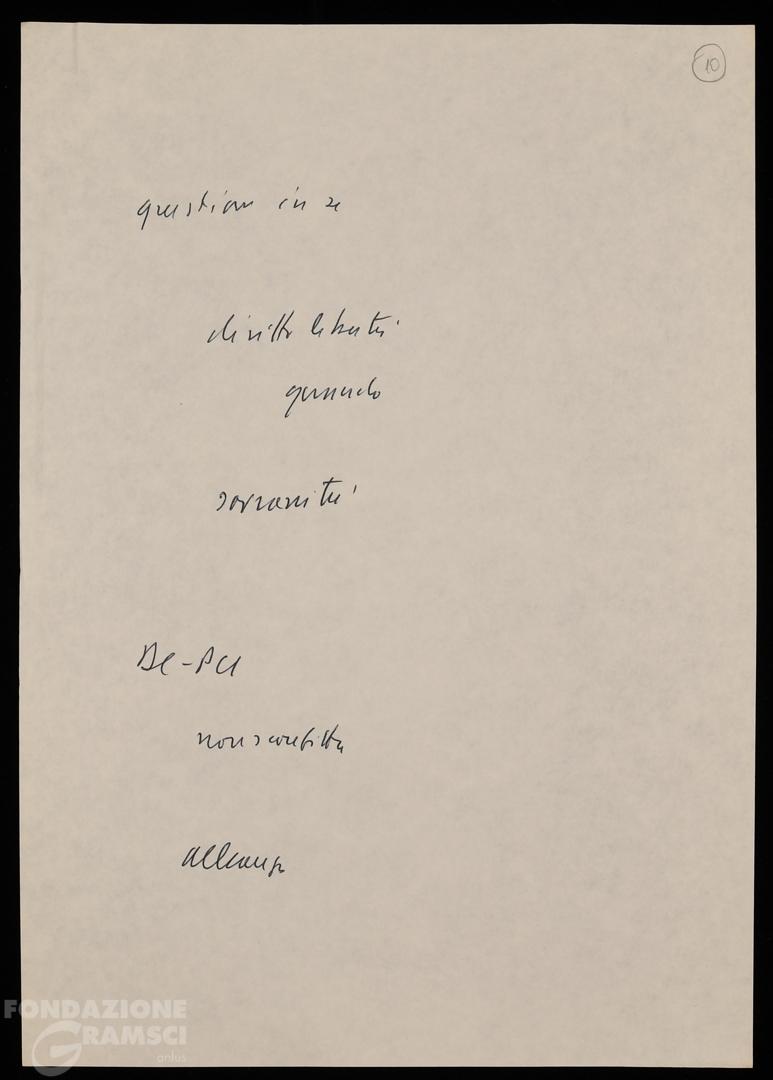 10
questione in sé
diritto libertà
quando
sovranità
DC-PCI
non sconfitta
alleanze
FONDAZIONE
GRAMSCI
onlus